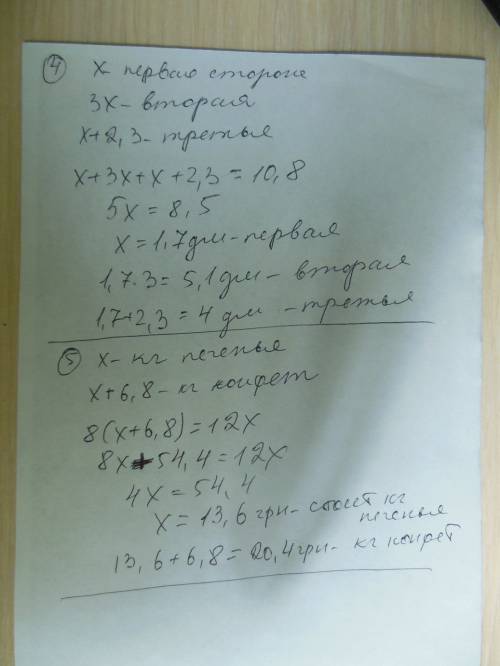 ④ x - первая сторона
3x - вторая
x+2,3 - третья
x+3x+x+2,3=10,8
5x=8,5
x=1,7дм - первая
1,7·3=5,1дм - вторая
1,7+2,3=4 дм - третья
⑤ x - кг печенья
x+6,8 - кг конфет
8(x+6,8)=12x
8x+54,4=12x
4x=54,4
x=13,6 грн - стоит кг
печенья
13,6+6,8=20,4грн - кг конфет